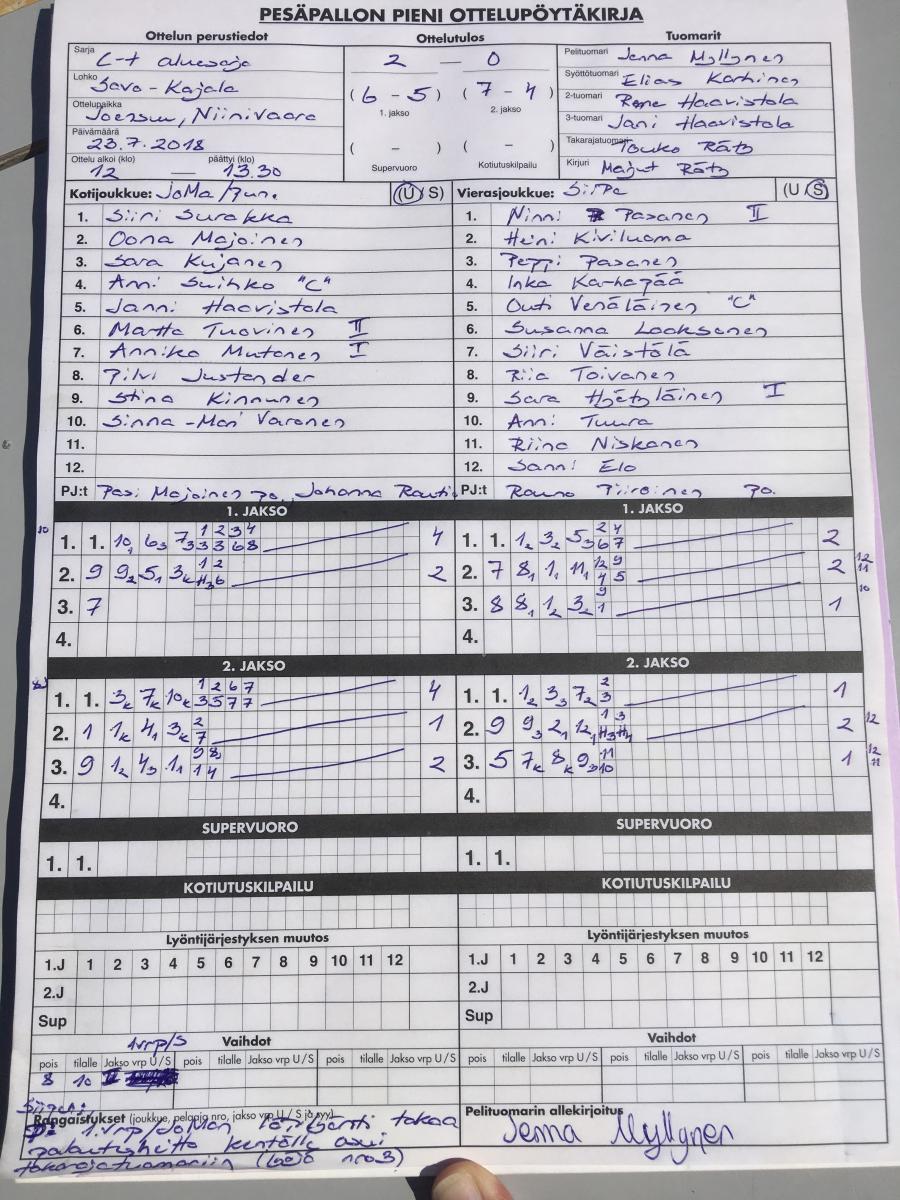 PESÄPALLON PIENI OTTELUPÖYTÄKIRJA
Ottelun perustiedot Ottelutulos Tuomarit
Sarja C-t aluesarja
Lohko Savo-Karjala
Ottelupaikka Joensuu, Niinivaara
Päivämäärä 23.7.2018
Ottelu alkoi (klo) päättyi (klo)
12 — 13.30
2 — 0
(6 - 5) (7 - 4)
1. jakso 2. jakso
( - ) ( - )
Supervuoro Kotiutuskilpailu
Pelituomari Jenna Myllynen
Syöttötuomari Elias Karhinen
2-tuomari Rene Haavistola
3-tuomari Jani Haavistola
Takarajatuomari Touko Räty
Kirjuri Maijut Räty
Kotijoukkue: JoMa/Jun. (U/S)
1. Siiri Surakka
2. Oona Majoinen
3. Sara Kujanen
4. Anni Suihko "C"
5. Janni Haavistola
6. Martta Tuovinen II
7. Annika Mutanen I
8. Pilvi Justander
9. Stina Kinnunen
10. Sinna-Mari Varonen
11.
12.
PJ:t Pasi Majoinen po, Johanna Rauti
Vierasjoukkue: SiiPe (U/S)
1. Ninni Pasanen II
2. Heini Kiviluoma
3. Peppi Pasanen
4. Inka Karhapää
5. Outi Venäläinen "C"
6. Susanna Looksonen
7. Siiri Väistölä
8. Riia Toivanen
9. Sara I
10. Anni Tuura
11. Riina Niskanen
12. Sanni Elo
PJ:t Rauno Piiroinen po.
1. JAKSO 1. JAKSO
10 1. 1. 10₁ 6₃ 7₃ 1 2 3 4 4
3 3 6 8
2. 9 9₂ 5₁ 3k 1 2 2
H₃ 6
3. 7
4.
1. 1. 1₂ 3₂ 5₃ 2 4 2
6 7
2. 7 8₁ 1₁ 11₁ 12 9 2 12 11
4 5
3. 8 8₁ 1₂ 3₂ 9 1 10
1
4.
2. JAKSO 2. JAKSO
1. 1. 3k 7k 10k 1 2 6 7 4
3 5 7 7
2. 1 1k 4₁ 3k 2 1
7
3. 9 1₂ 4₃ 1₁ 9 8 2
1 4
4.
1. 1. 1₂ 3₃ 7₂ 2 1
3
2. 9 9₃ 2₁ 12₁ 1 3 2 12
H₃ H₄
3. 5 7k 8k 9₃ 11 1 12 11
10
4.
SUPERVUORO SUPERVUORO
1. 1. 1. 1.
KOTIUTUSKILPAILU KOTIUTUSKILPAILU
Lyöntijärjestyksen muutos Lyöntijärjestyksen muutos
1.J 1 2 3 4 5 6 7 8 9 10 11 12 1.J 1 2 3 4 5 6 7 8 9 10 11 12
2.J 2.J
Sup Sup
1vrp/S Vaihdot Vaihdot
pois tilalle Jakso vrp U/S pois tilalle Jakso vrp U/S pois tilalle Jakso vrp U/S pois tilalle Jakso vrp U/S pois tilalle Jakso vrp U/S pois tilalle Jakso vrp U/S
8 10 II
Rangaistukset (joukkue, pelaaja nro, jakso vrp U / S ja syy)
1.vrp/JoMan takaa
palautusheitto kentälle osui
takarajatuomariin (nro3)
Pelituomarin allekirjoitus
Jenna Myllynen